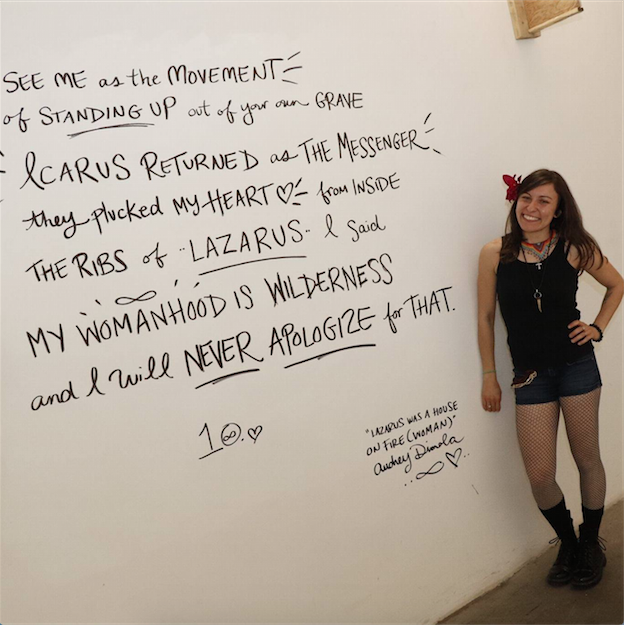 SEE ME as the MOVEMENT
of STANDING UP out of your own GRAVE
ICARUS RETURNED as THE MESSENGER
they plucked MY HEART ♡ from INSIDE
THE RIBS of LAZARUS I said
MY WOMANHOOD IS WILDERNESS
and I will NEVER APOLOGIZE for THAT.
10.♡
"LAZARUS WAS A HOUSE
ON FIRE (WOMAN)"
Audrey Dimola
∞♡